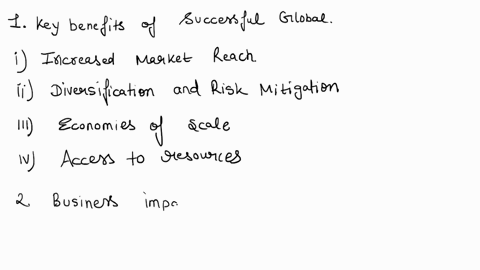 1. Key benefits of Successful Global.
i) Increased Market Reach
ii) Diversification and Risk Mitigation
iii) Economies of scale
iv) Access to resources
2. Business impa